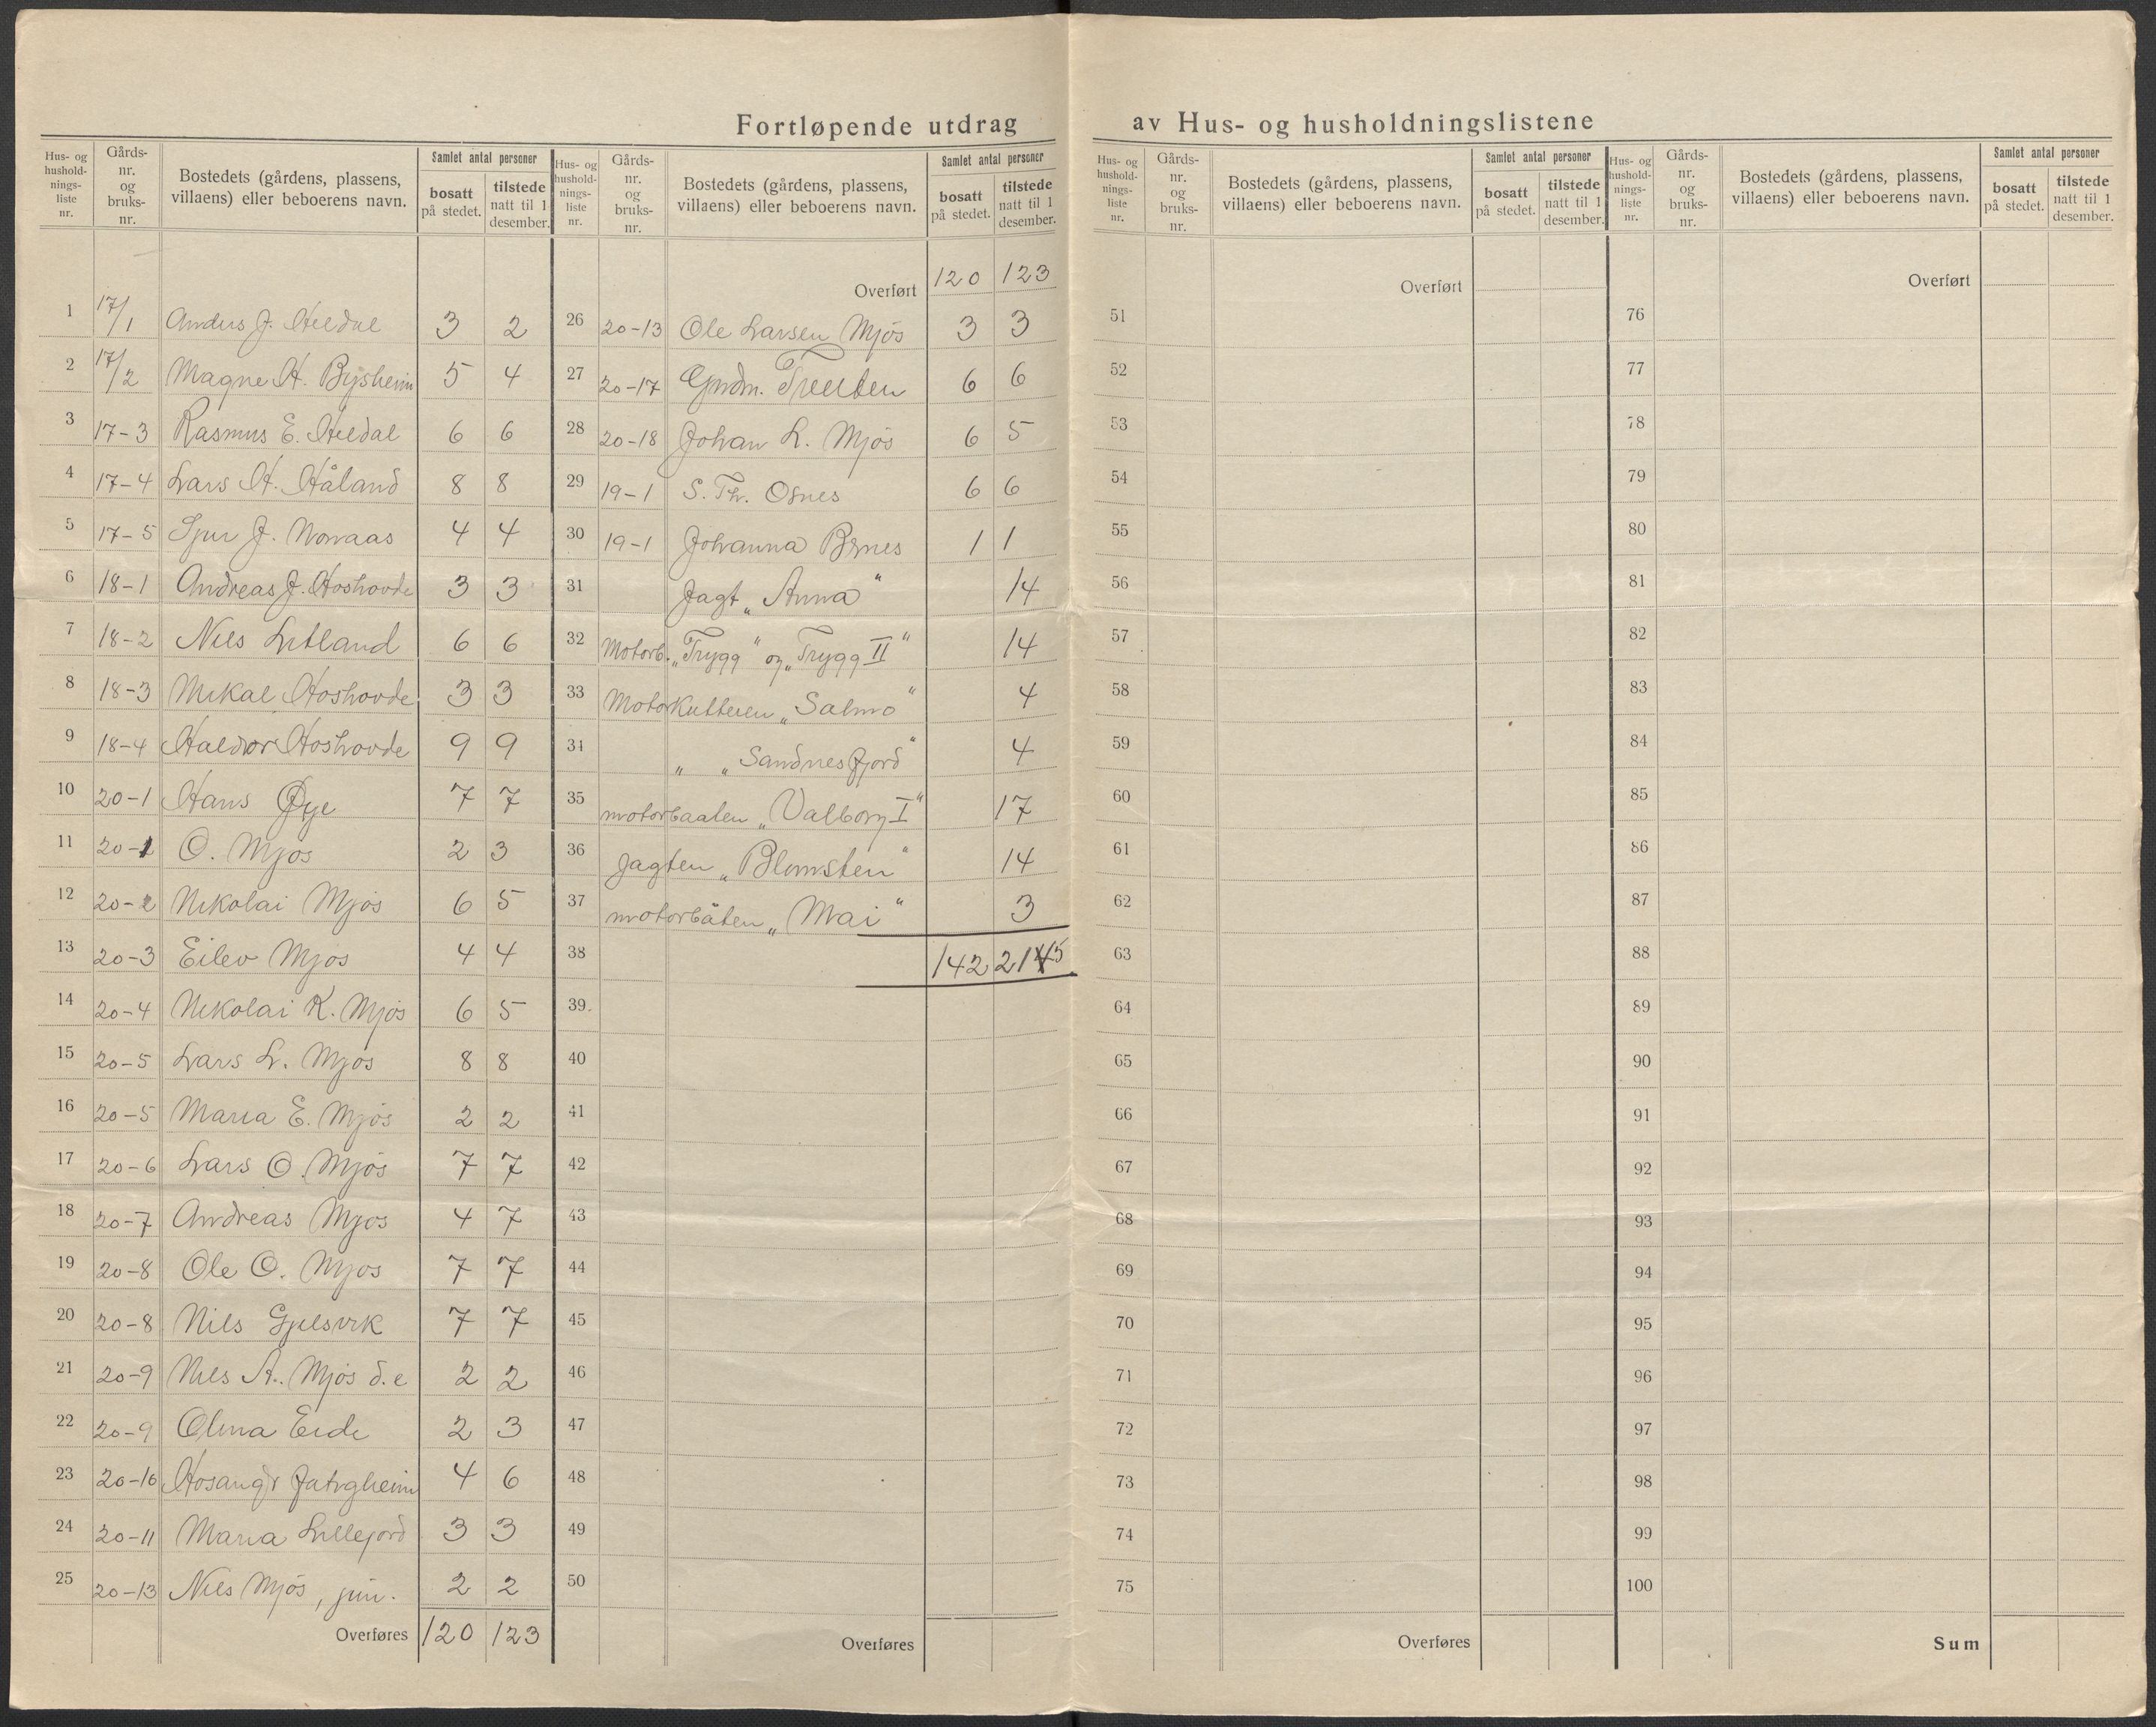 Fortløpende utdrag av Hus- og husholdningslistene
Hus- og hushold-nings-liste nr. | Gårds-nr. og bruks-nr. | Bostedets (gårdens, plassens, villaens) eller beboerens navn. | Samlet antal personer | bosatt på stedet. | tilstede natt til 1 desember.
1 17/1 Anders J. Hildal 3 2
2 17/2 Magne H. Bysheim 5 4
3 17-3 Rasmus E. Hildal 6 6
4 17-4 Lars H. Håland 8 8
5 17-5 J. 4 4
6 18-1 Andreas J. Hoshovde 3 3
7 18-2 Nils Litland 6 6
8 18-3 Mikal Hoshovde 3 3
9 18-4 Haldor Hoshovde 9 9
10 20-1 Hans Øye 7 7
11 20-1 O. Mjøs 2 3
12 20-2 Nikolai Mjøs 6 5
13 20-3 Eilev Mjøs 4 4
14 20-4 Nikolai K. Mjøs 6 5
15 20-5 Lars L. Mjøs 8 8
16 20-5 Maria E. Mjøs 2 2
17 20-6 Lars O. Mjøs 7 7
18 20-7 Andreas Mjøs 4 7
19 20-8 Ole O. Mjøs 7 7
20 20-8 Nils Gjelsvik 7 7
21 20-9 Nils A. Mjøs d.e 2 2
22 20-9 Olina Eide 2 3
23 20-10 4 6
24 20-11 Maria Lillejord 3 3
25 20-13 Nils Mjøs, jun. 2 2
Overføres 120 123
Hus- og hushold-nings-liste nr. | Gårds-nr. og bruks-nr. | Bostedets (gårdens, plassens, villaens) eller beboerens navn. | Samlet antal personer | bosatt på stedet. | tilstede natt til 1 desember.
Overført 120 123
26 20-13 Ole Larsen Mjøs 3 3
27 20-17 Gudm. 6 6
28 20-18 Johan L. Mjøs 6 5
29 19-1 S. Th. Osnes 6 6
30 19-1 Johanna 1 1
31 Jagt „Anna" 14
32 Motorb. „Trygg" og „Trygg II" 14
33 Motorkutteren „Salmo" 4
34 „ „Sandnesfjord" 4
35 motorbaaten „Valborg I" 17
36 Jagten „Blomsten" 14
37 motorbåten „Mai" 3
38 142 2145
39.
40
41
42
43
44
45
46
47
48
49
50
Overføres
Hus- og hushold-nings-liste nr. | Gårds-nr. og bruks-nr. | Bostedets (gårdens, plassens, villaens) eller beboerens navn. | Samlet antal personer | bosatt på stedet. | tilstede natt til 1 desember.
Overført
51
52
53
54
55
56
57
58
59
60
61
62
63
64
65
66
67
68
69
70
71
72
73
74
75
Overføres
Hus- og hushold-nings-liste nr. | Gårds-nr. og bruks-nr. | Bostedets (gårdens, plassens, villaens) eller beboerens navn. | Samlet antal personer | bosatt på stedet. | tilstede natt til 1 desember.
Overført
76
77
78
79
80
81
82
83
84
85
86
87
88
89
90
91
92
93
94
95
96
97
98
99
100
Sum